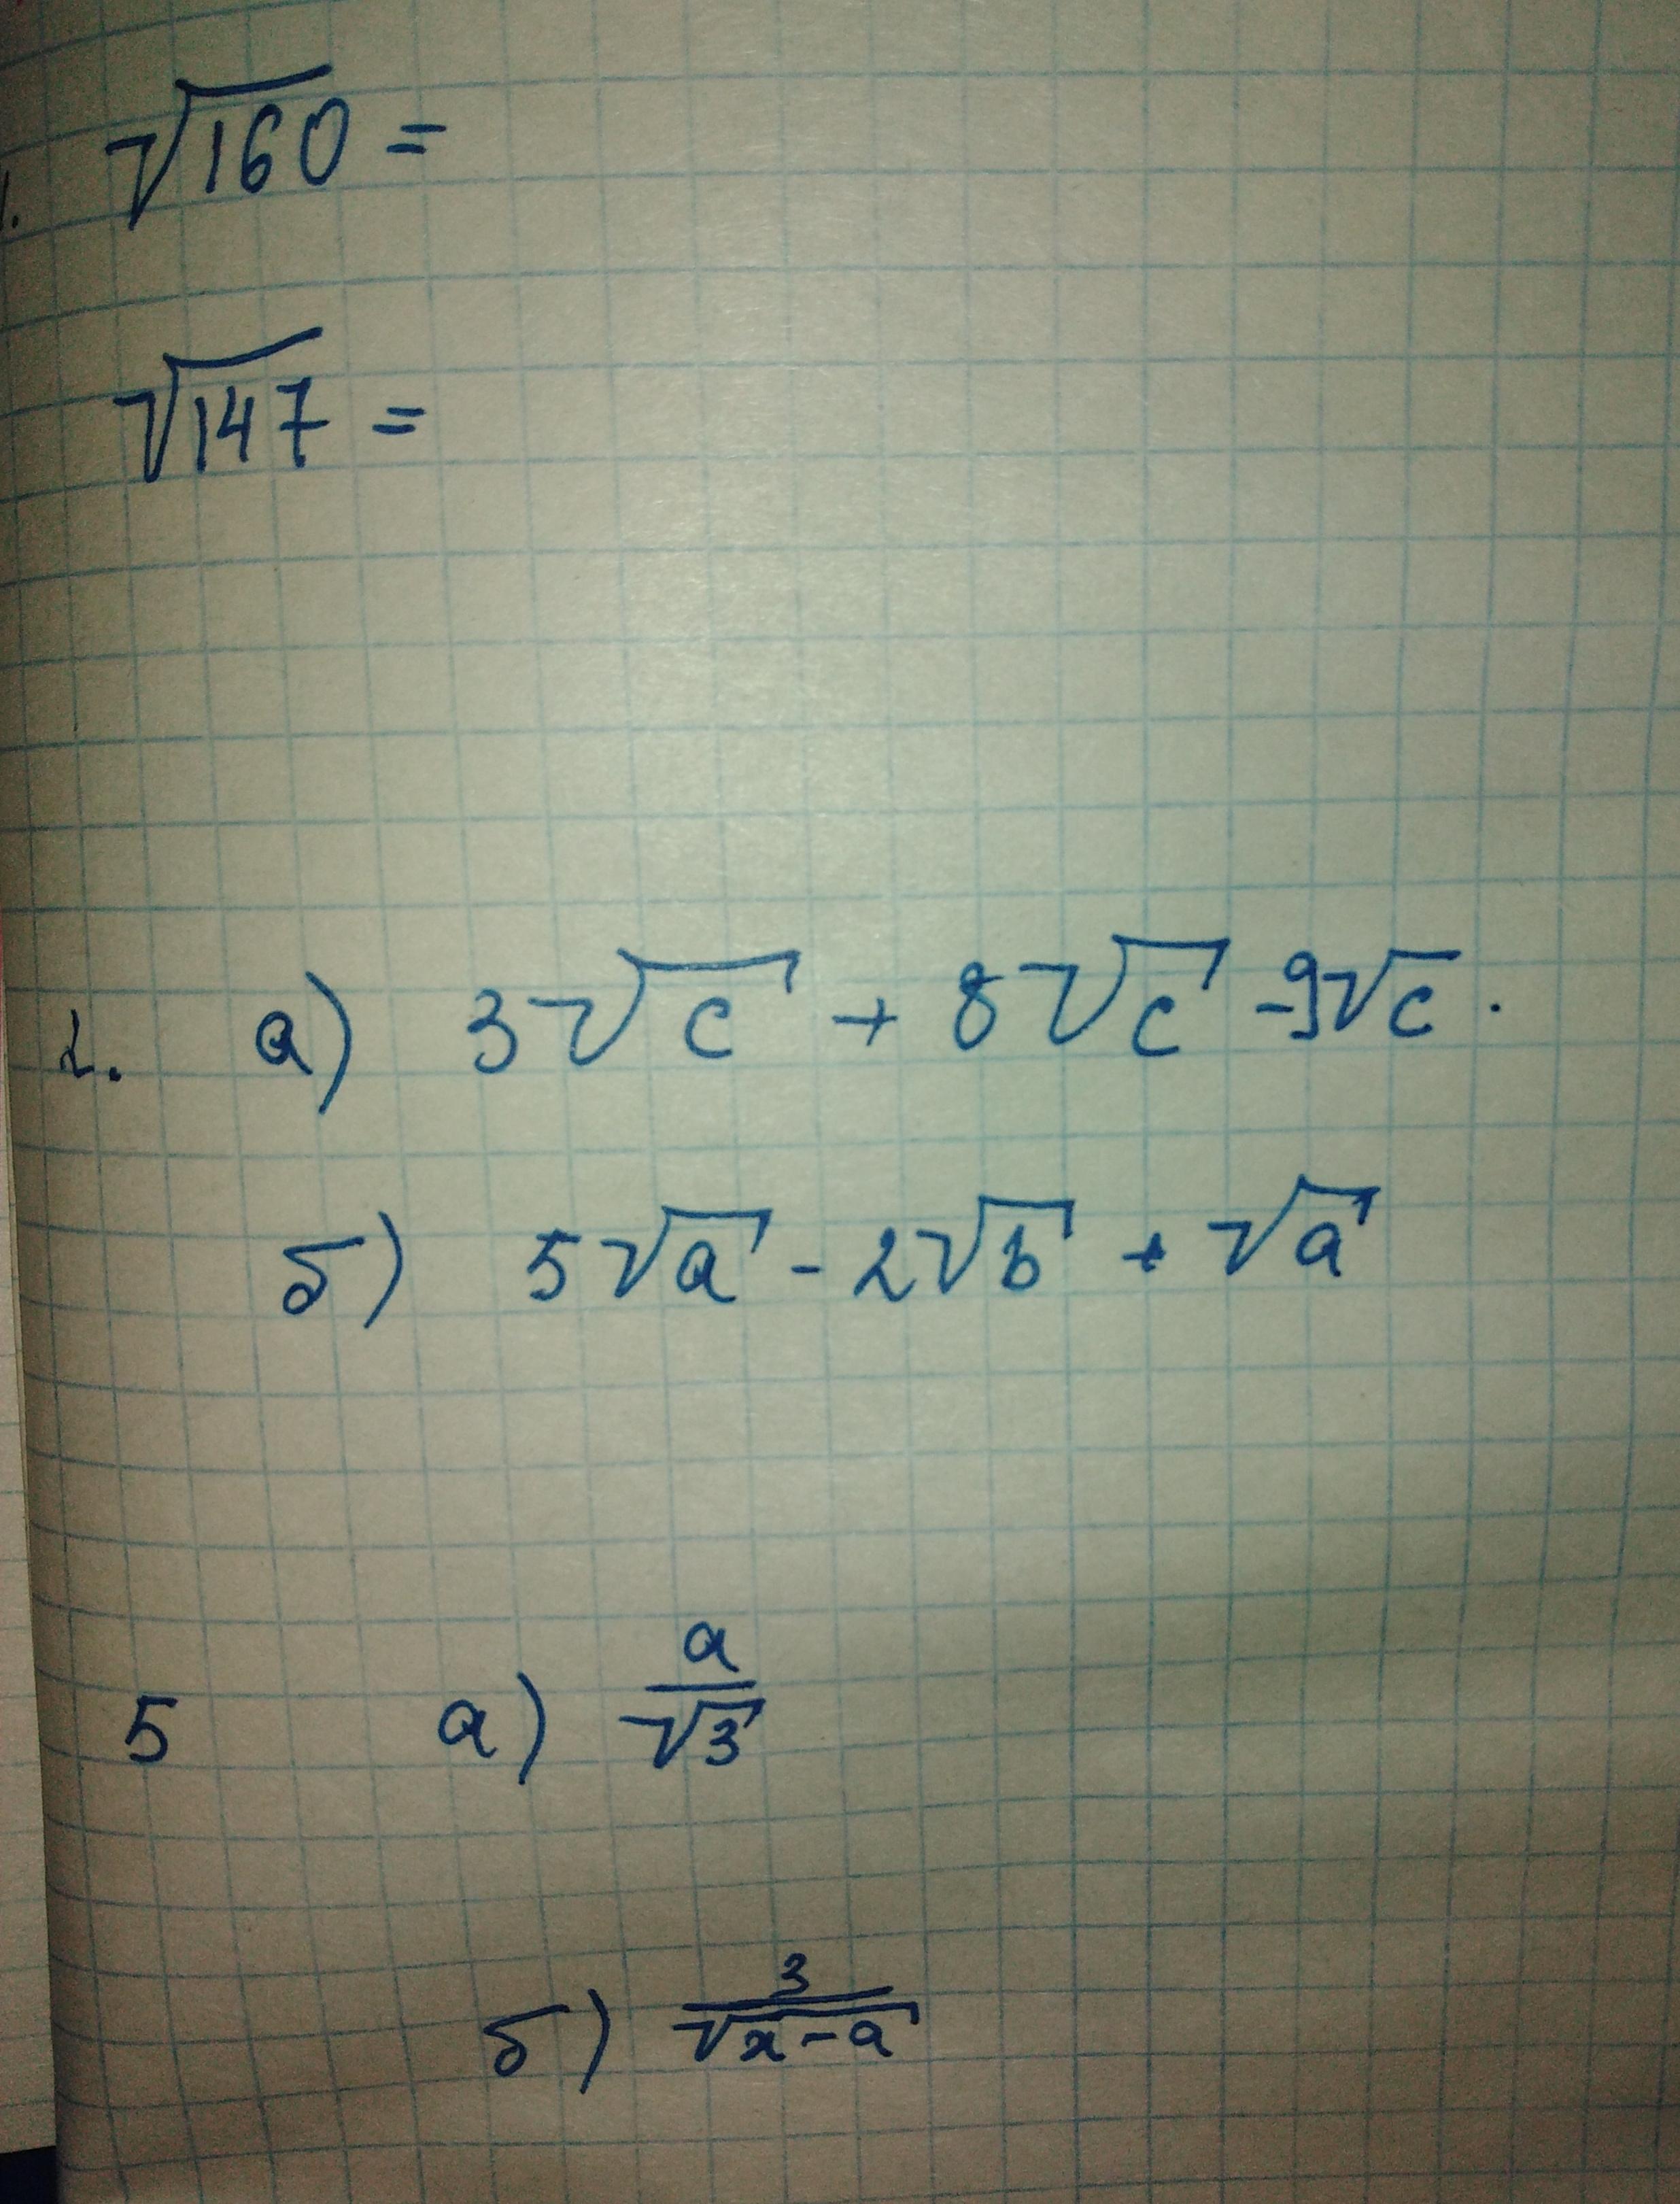 1. √160 =
√147 =
2. а) 3√c + 8√c - 9√c.
б) 5√a - 2√b + √a
5 а) a/√3
б) 3/√(x-a)